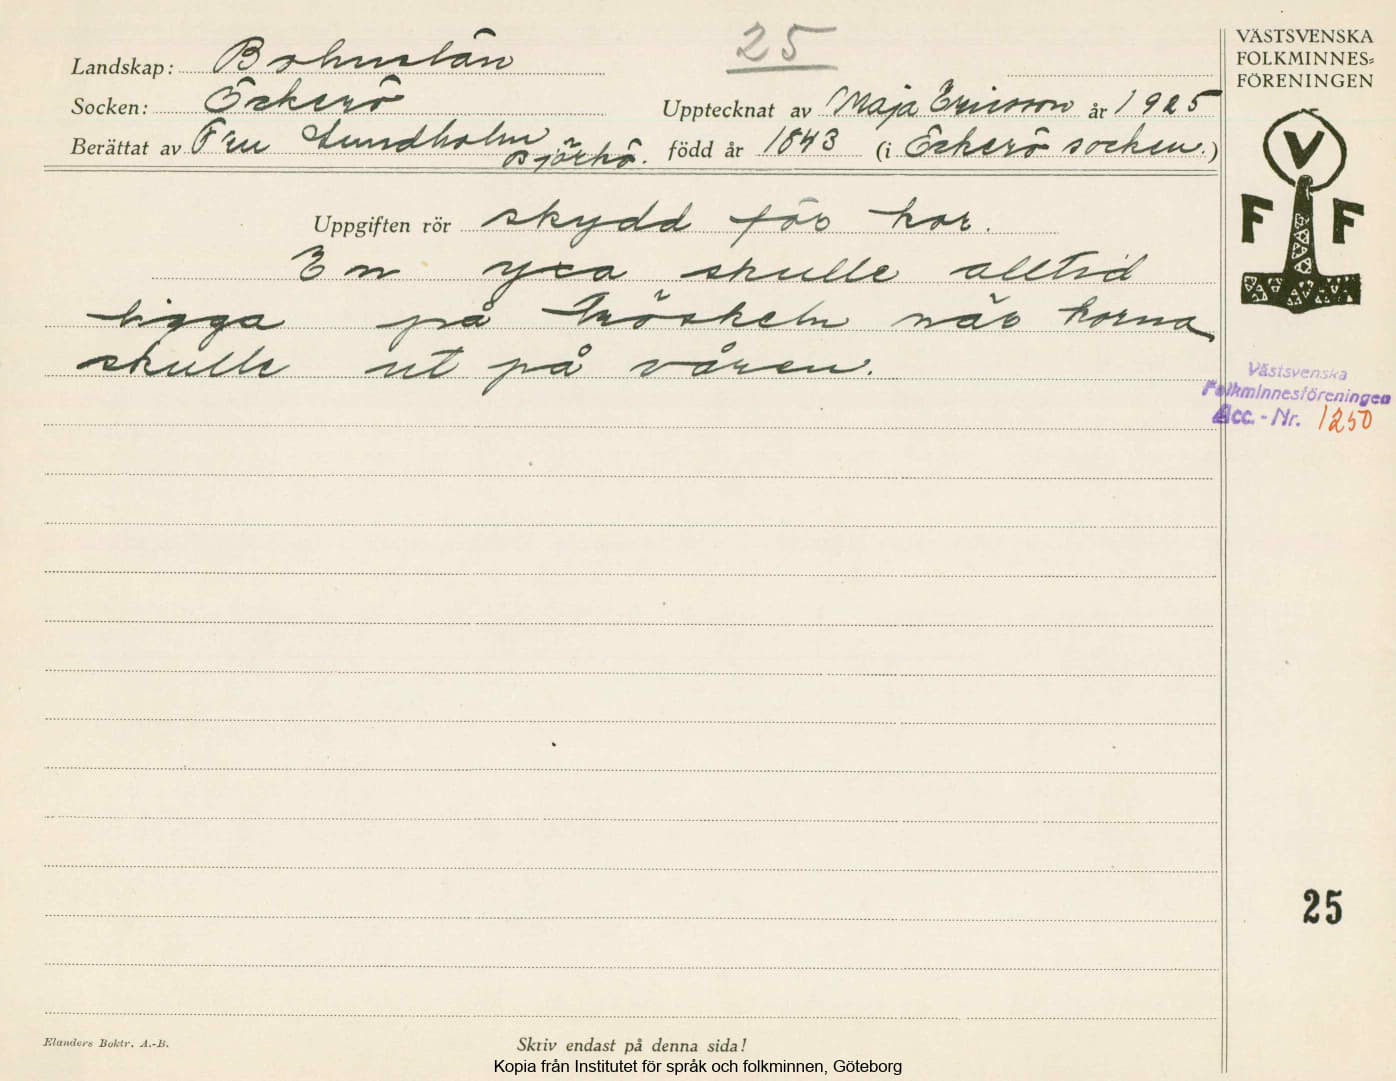 25
VÄSTSVENSKA
FOLKMINNES-
FÖRENINGEN
Landskap: Bohuslän
Socken: Öckerö
Upptecknat av Maja Ericsson år 1925
Berättat av Fru Lundholm Björkö. född år 1843 (i Öckerö socken.)
V
F F
Uppgiften rör skydd för kor.
En yxa skulle alltid
ligga på tröskeln när korna
skulle ut på våren.
Västsvenska
Folkminnesföreningen
Acc. - Nr. 1250
25
Elanders Boktr. A.-B.
Skriv endast på denna sida!
Kopia från Institutet för språk och folkminnen, Göteborg